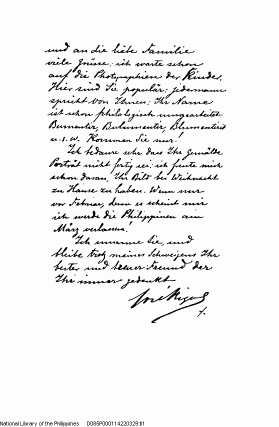 und an die liebe Familie
viele Grüsse; ich warte schon
auf die Photographien der Kinder.
Hier sind Sie populär; jedermann
spricht von Ihnen; Ihr Name
ist schon philologisch umgearbeitet
Bumenter, Bulumenter, Blumenteris
u.s.w. Kommen Sie nur.
Ich bedaure sehr dass Ihr Gemälde
Porträt nicht fertig sei; ich freute mich
schon daran, Ihr Bild bei Weihnacht
zu Hause zu haben. Wenn nur
vor Februar, denn es scheint mir
ich werde die Philippinen am
März verlassen.
Ich umarme Sie, und
bleibe trotz meines Schweigens Ihr
bester und treuer Freund der
Ihr immer gedenkt
José Rizal
National Library of the Philippines